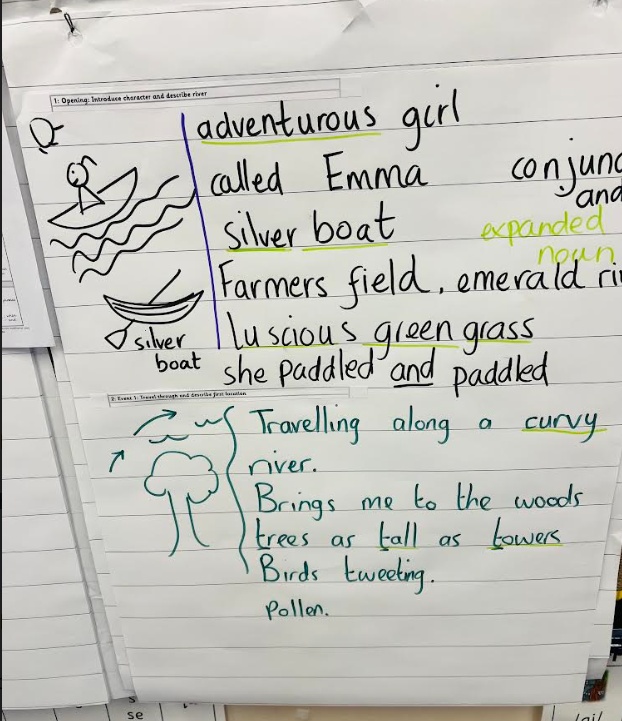 1: Opening: Introduce character and describe river
adventurous girl
called Emma
conjunc
and
silver boat
expanded
noun
Farmers field, emerald ri
luscious green grass
silver
boat
she paddled and paddled
2: Event 1: Travel through and describe first location
Travelling along a curvy
river.
Brings me to the woods
trees as tall as towers
Birds tweeting.
Pollen.
se